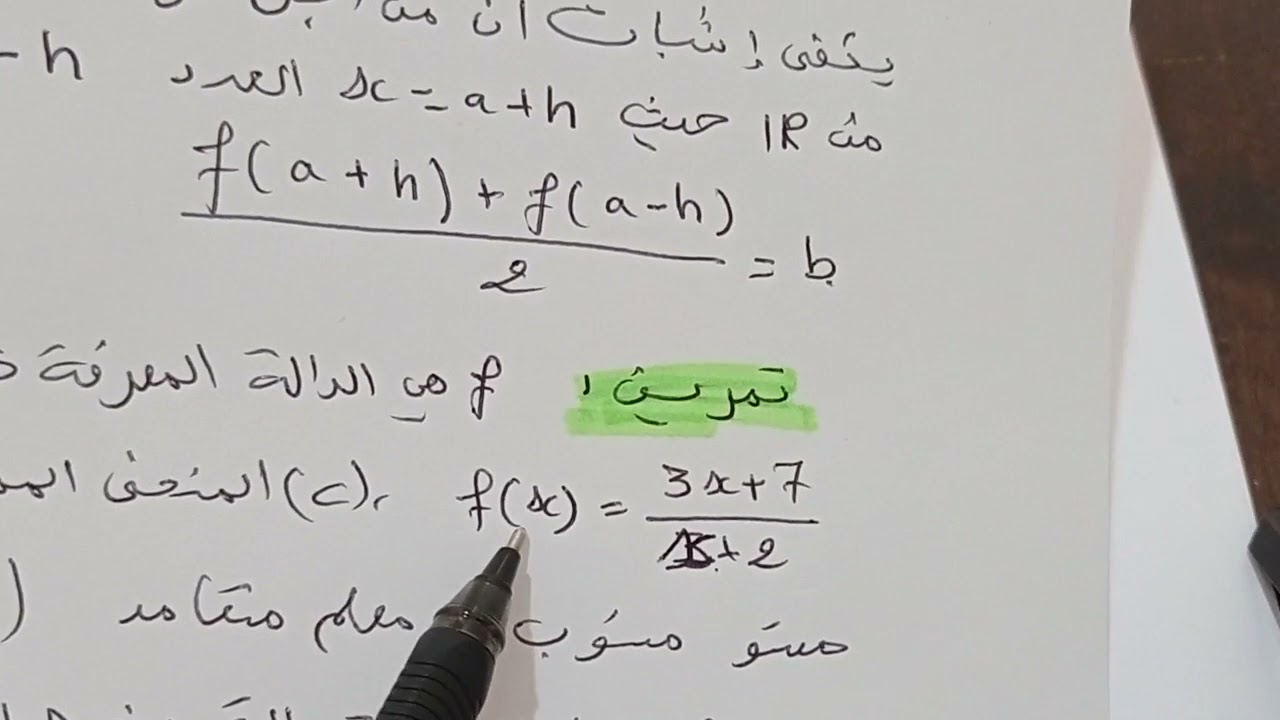 يكفي إثبات أن من أجل
من IR حيث x = a+h العدد
- h
f(a+h) + f(a-h)
2
= b
تمرين 1 f هي الدالة المعرفة
f(x) = 3x+7
x+2
، (C) المنحنى
مستو منسوب معلم متعامد (